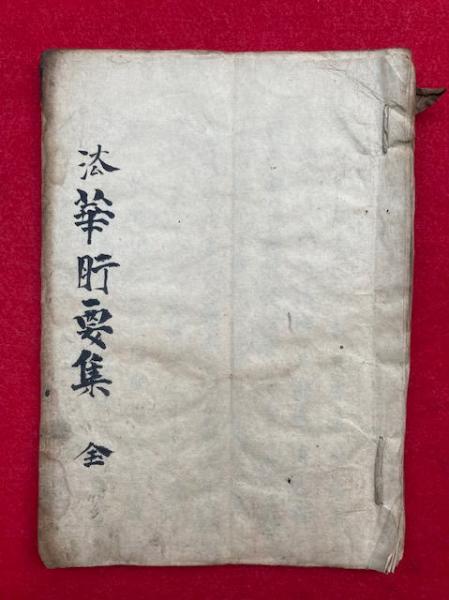 法華肝要集 全